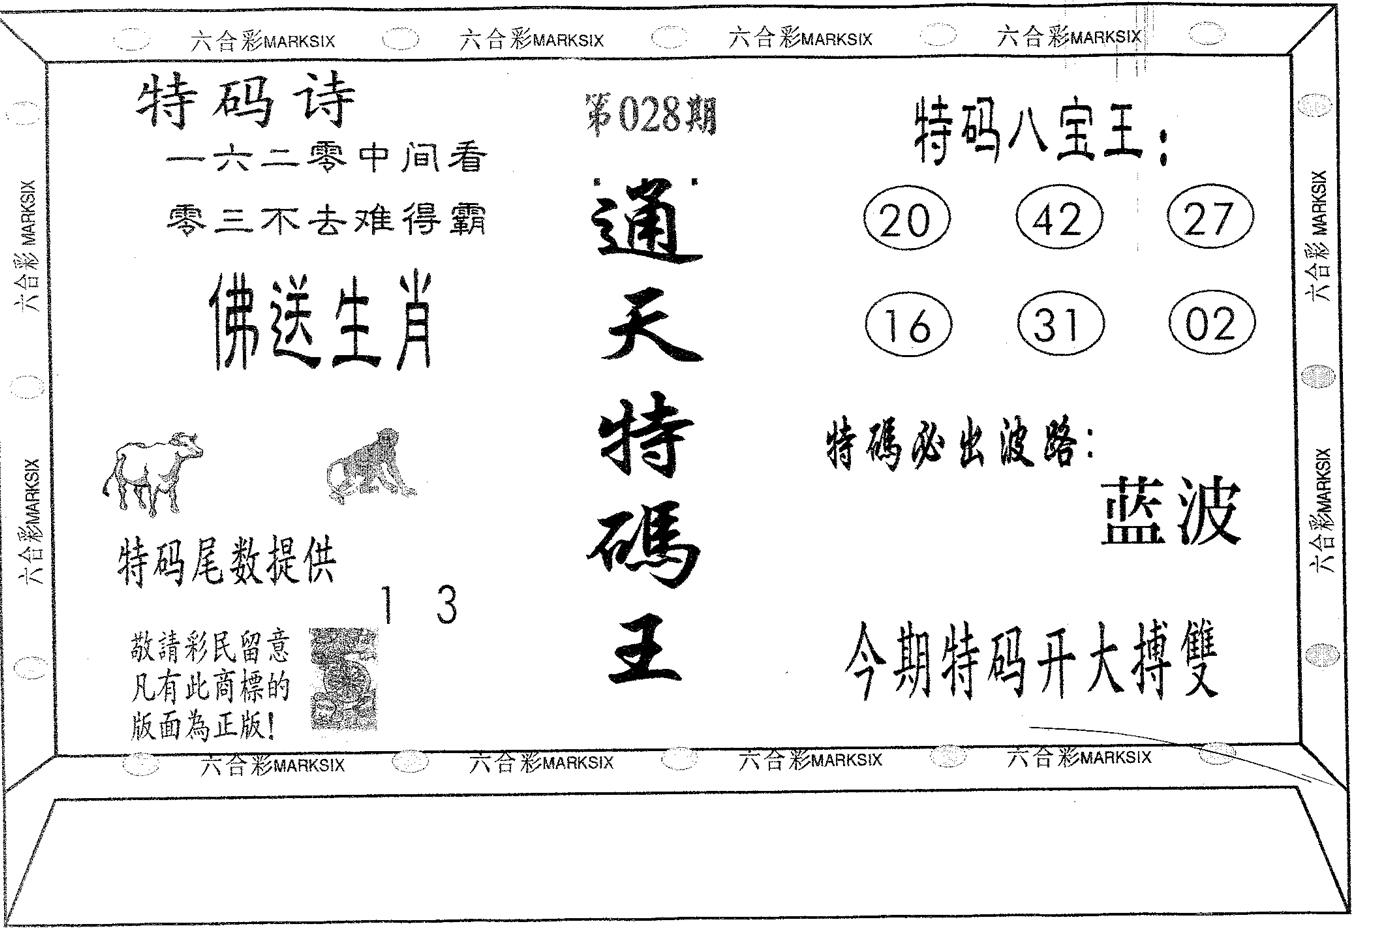 六合彩MARKSIX 六合彩MARKSIX 六合彩MARKSIX 六合彩MARKSIX
特码诗
一六二零中间看
零三不去难得霸
佛送生肖
特码尾数提供
1 3
敬請彩民留意
凡有此商標的
版面為正版!
第028期
通天特碼王
特码八宝王:
20 42 27
16 31 02
特碼必出波路:
蓝波
今期特码开大搏雙
六合彩MARKSIX
六合彩MARKSIX
六合彩MARKSIX
六合彩MARKSIX
六合彩MARKSIX 六合彩MARKSIX 六合彩MARKSIX 六合彩MARKSIX